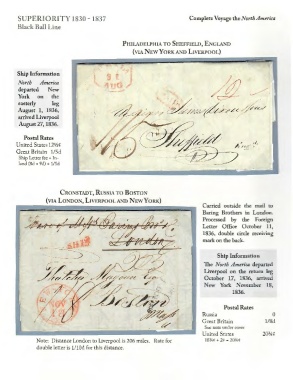 SUPERIORITY 1830 - 1837
Black Ball Line
Complete Voyage the North America
PHILADELPHIA TO SHEFFIELD, ENGLAND
(VIA NEW YORK AND LIVERPOOL)
Ship Information
North America
departed New
York on the
easterly leg
August 1, 1836,
arrived Liverpool
August 27, 1836.
Postal Rates
United States 12½¢
Great Britain 1/5d
Ship Letter fee + In-
land (8d + 9d) = 1/5d
21
AUG
Sheffield
CRONSTADT, RUSSIA TO BOSTON
(VIA LONDON, LIVERPOOL AND NEW YORK)
Carried outside the mail to
Baring Brothers in London.
Processed by the Foreign
Letter Office October 11,
1836, double circle receiving
mark on the back.
London
SHIP
NOV
Boston
Ship Information
The North America departed
Liverpool on the return leg
October 17, 1836, arrived
New York November 18,
1836.
Postal Rates
Russia 0
Great Britain
United States 20¾¢
18¾¢ + 2¢ = 20¾¢
Note: Distance London to Liverpool is 206 miles. Rate for
double letter is 1/10d for this distance.